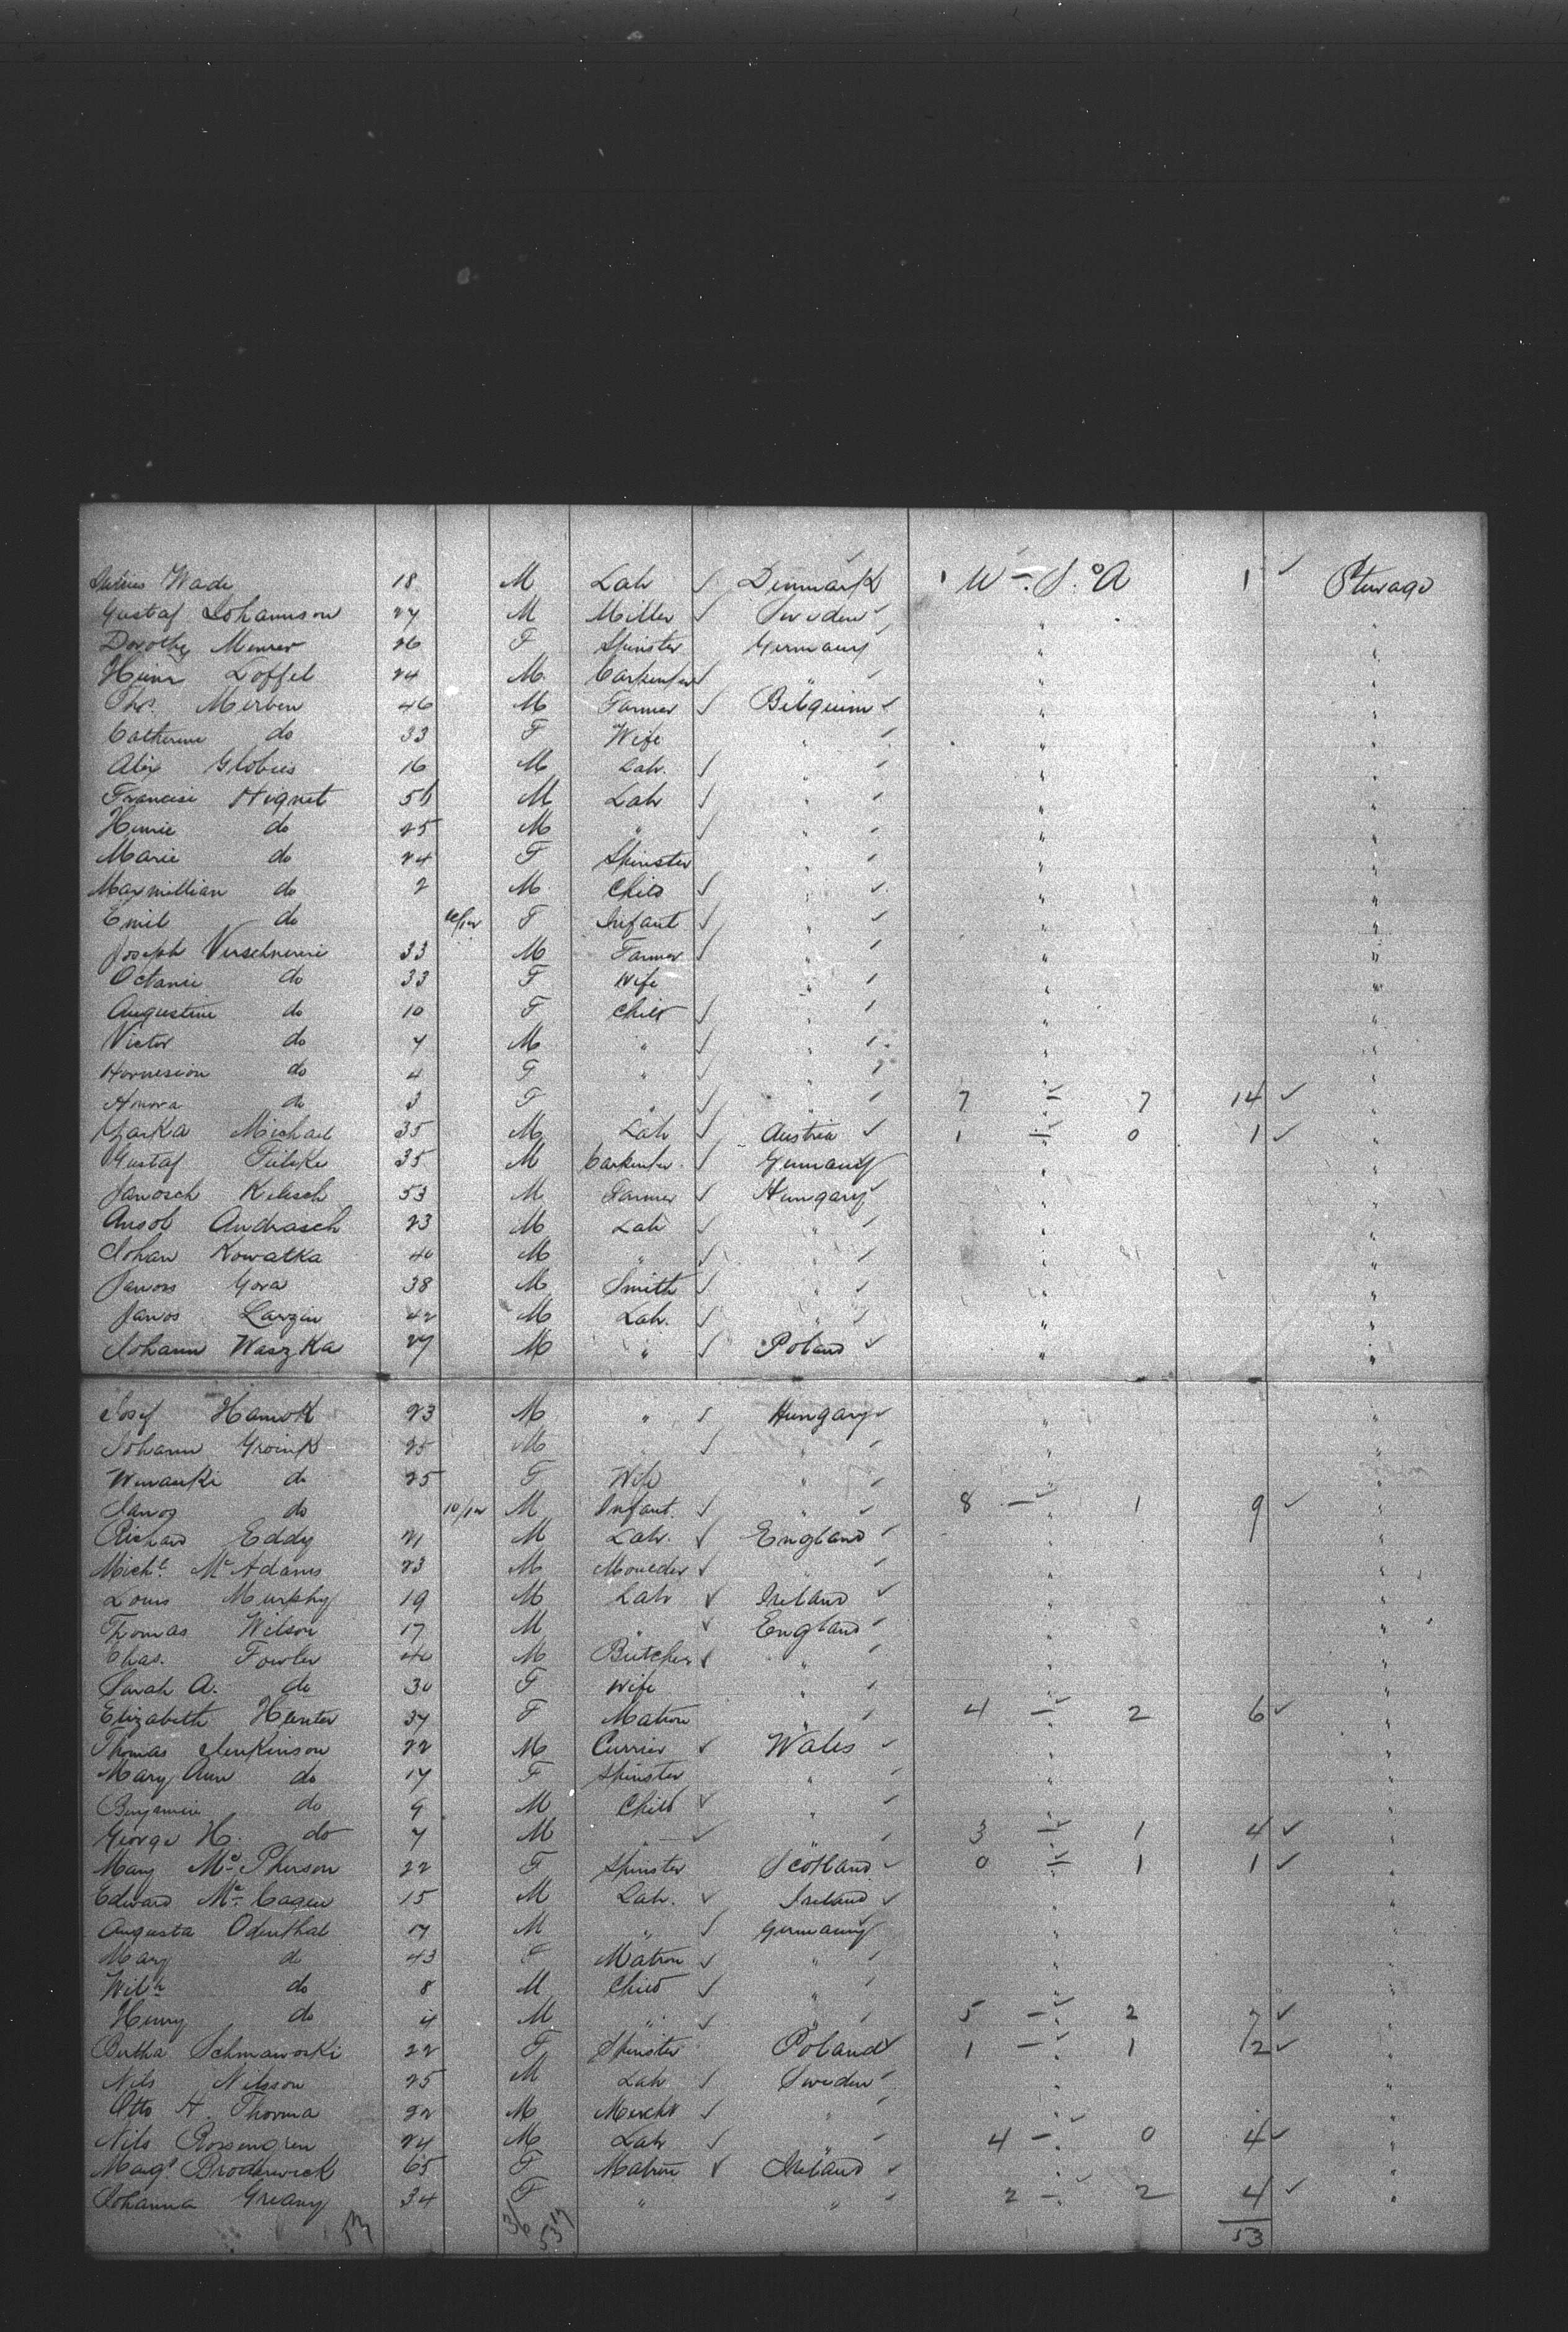 Julius Wade 18 M Lab ✓ Denmark ✓ 1 W. S. of A 1 ✓ Sterage
Gustaf Johannson 27 M Miller ✓ Sweden ✓ " "
Dorothy Meurer 26 F Spinster Germany " "
Heinr Loffel 24 M Carpenter ✓ " ✓ " "
Thos. Merben 46 M Farmer ✓ Belguim ✓ " "
Catherine do 33 F Wife " ✓ " "
Alix Globus 16 M Lab. ✓ " ✓ " "
Francisi Hignet 56 M Lab ✓ " ✓ " "
Henrie do 25 M " ✓ " ✓ " "
Marie do 24 F Spinster " ✓ " "
Maxmillian do 2 M Child ✓ " ✓ " "
Emil do 10/12 F Infant ✓ " ✓ " "
Joseph Verschnereri 33 M Farmer ✓ " ✓ " "
Octanie do 33 F Wife " ✓ " "
Augustine do 10 F Child ✓ " ✓ " "
Victor do 7 M " ✓ " ✓ " "
do 4 F " ✓ " ✓ " "
do 3 F " ✓ " ✓ 7 — 7 14 ✓ "
Michael 35 M Lab ✓ Austria ✓ 1 — 0 1 ✓ "
Gustaf 35 M Carpenter ✓ Germany " "
Janosch Kelisch 53 M Farmer ✓ Hungary ✓ " "
Andrasch 23 M Lab ✓ " ✓ " "
Johan Kowatka 40 M " ✓ " ✓ " "
Janos Gora 38 M Smith ✓ " ✓ " "
Janos Larzin 42 M Lab. ✓ " ✓ " "
Johann Waszka 27 M " ✓ Poland ✓ " "
Josef Hamok 23 M " ✓ Hungary ✓ " "
Johann Groink 25 M " ✓ " ✓ " "
do 25 F Wife " ✓ " "
Janos do 10/12 M Infant. ✓ " ✓ 8 — 1 9 ✓ "
Richard Eddy 21 M Lab. ✓ England ✓ " "
Michl. McAdams 23 M Moulder ✓ " ✓ " "
Louis Murphy 19 M Lab ✓ Ireland ✓ " "
Thomas Wilson 17 M " ✓ England ✓ " "
Chas. Fowler 40 M Butcher ✓ " ✓ " "
Sarah A. do 30 F Wife " ✓ " "
Elizabeth Hunter 37 F Matron " ✓ 4 — 2 6 ✓ "
Thomas Jenkinson 22 M Currier ✓ Wales ✓ " "
Mary Ann do 17 F Spinster " ✓ " "
Benjamin do 9 M Child ✓ " ✓ " "
George H. do 7 M " ✓ " ✓ 3 — 1 4 ✓ "
Mary McPherson 22 F Spinster Scotland ✓ 0 — 1 1 ✓ "
Edward McCague 15 M Lab. ✓ Ireland ✓ " "
Augusta Odenthal 17 M " ✓ Germany " "
Mary do 43 F Matron ✓ " ✓ " "
Wilh do 8 M Child ✓ " ✓ " "
Henry do 4 M " ✓ " ✓ 5 — 2 7 ✓ "
Bertha Schmaworki 22 F Spinster Poland ✓ 1 — 1 2 ✓ "
Nils Nilsson 25 M Lab ✓ Sweden ✓ " "
Otto H. Thorma 22 M Mercht ✓ " ✓ " "
Nils Rosengren 24 M Lab ✓ " ✓ 4 — 0 4 ✓ "
Magt Broderwick 65 F Matron ✓ Ireland ✓ " "
Johanna Greany 34 F " " ✓ 2 — 2 4 ✓ "
53